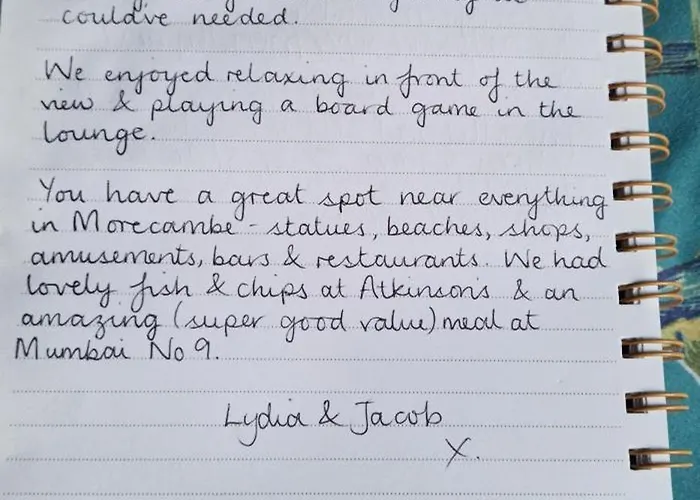 could've needed.
We enjoyed relaxing in front of the
view & playing a board game in the
lounge.
You have a great spot near everything
in Morecambe - statues, beaches, shops,
amusements, bars & restaurants. We had
lovely fish & chips at Atkinson's & an
amazing (super good value) meal at
Mumbai No 9.
Lydia & Jacob
X.